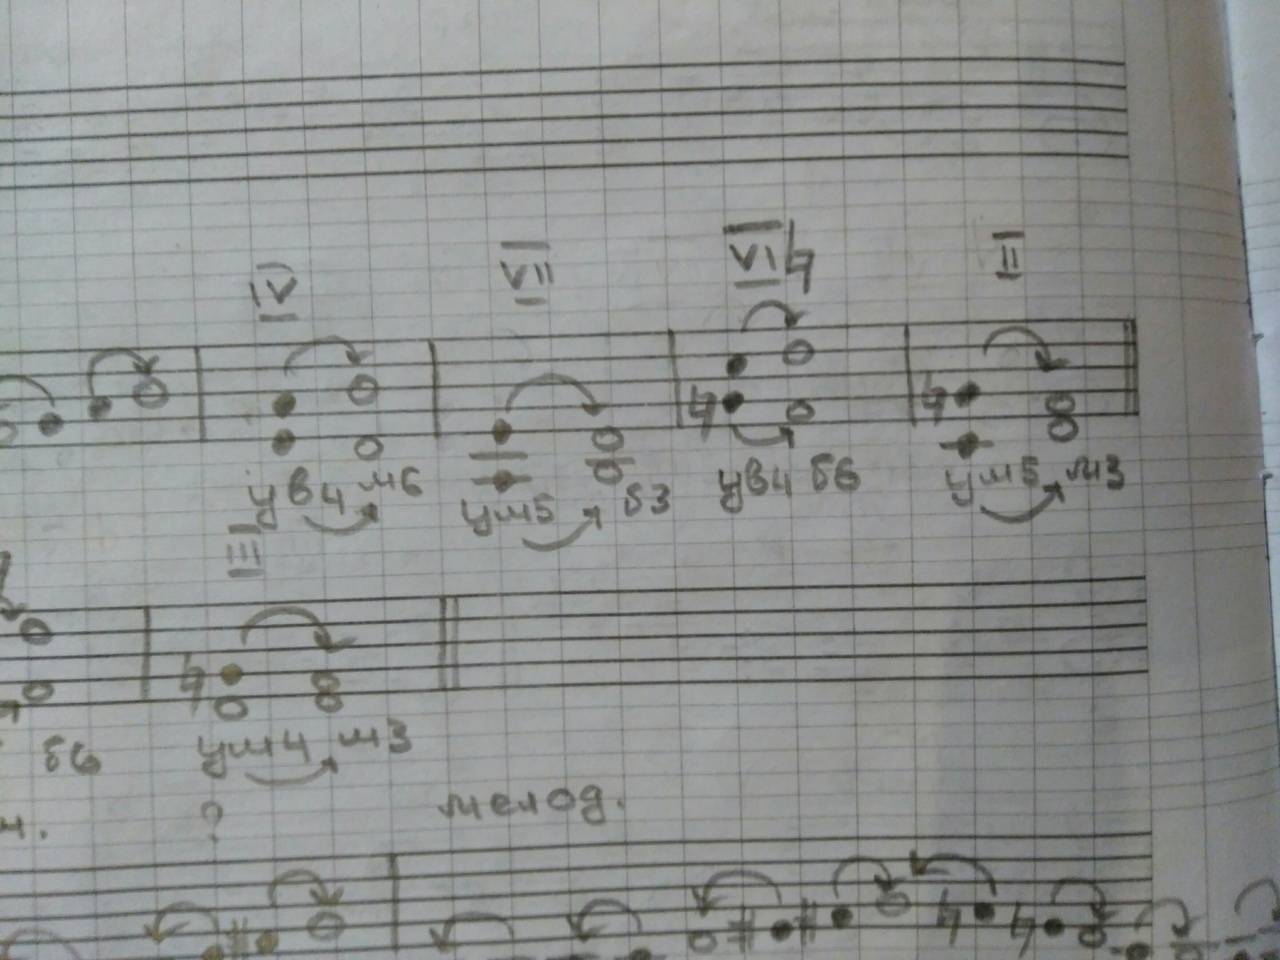 IV VII VI♮ II
ув4 м6 ум5 б3 ув4 б6 ум5 м3
III
б6 ум4 м3
? мелод.